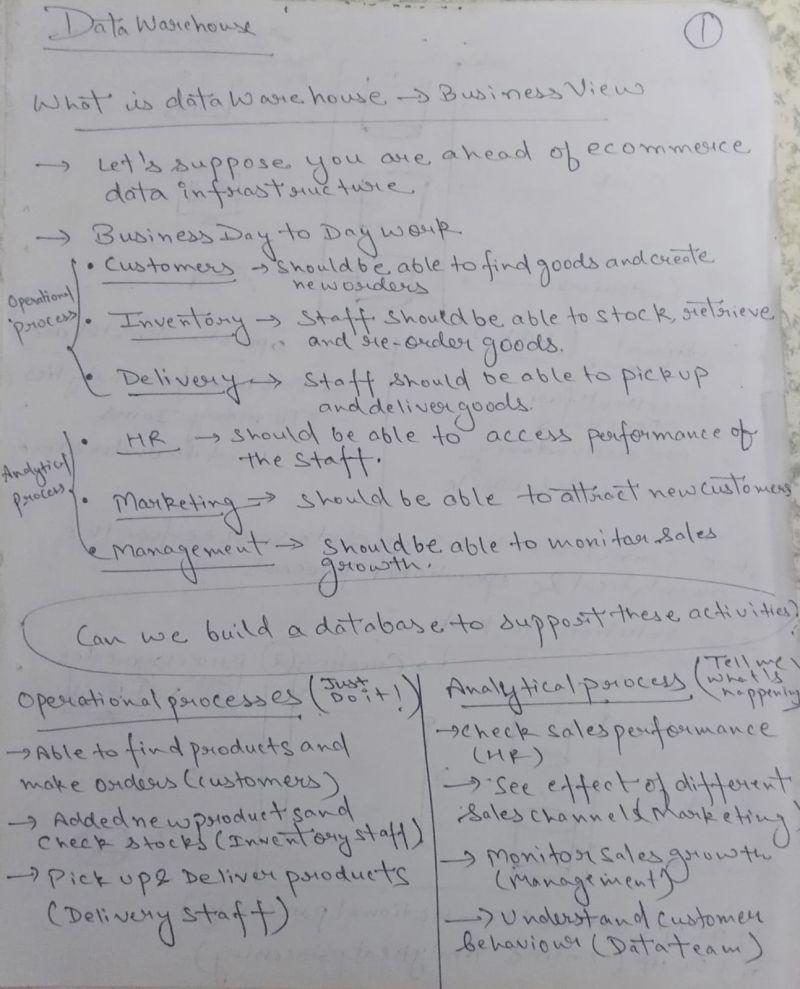 Data Warehouse
1
What is data Warehouse → Business View
→ Let's suppose you are ahead of ecommerce
data infrastructure
→ Business Day to Day work
Operational process
• Customers → should be able to find goods and create
new orders
• Inventory → Staff should be able to stock, retrieve
and re-order goods.
• Delivery → Staff should be able to pickup
and deliver goods.
Analytical process
• HR → should be able to access performance of
the staff.
• Marketing → should be able to attract new customers
• Management → should be able to monitor sales
growth.
Can we build a database to support these activities?
Operational processes (Just Do it!)
→ Able to find products and
make orders (customers)
→ Added new products and
check stocks (Inventory staff)
→ Pick up & Deliver products
(Delivery staff)
Analytical process (Tell me what's happening)
→ check sales performance
(HR)
→ See effect of different
sales channels (Marketing)
→ Monitor sales growth
(Management)
→ Understand customer
behaviour (Data team)